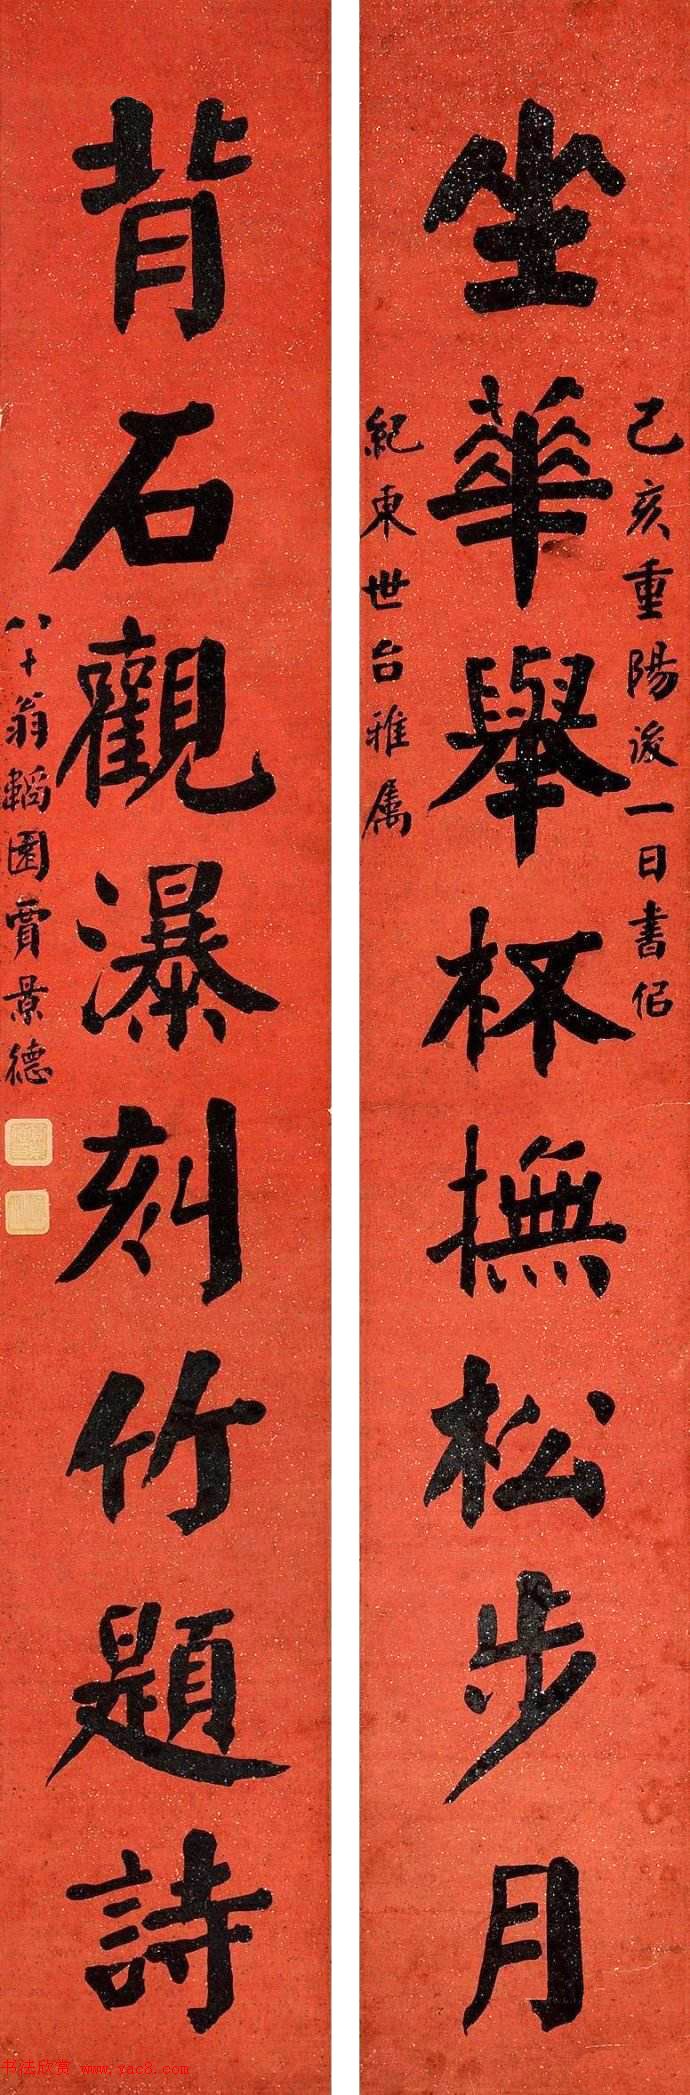 己亥重陽後一日書侣
坐華舉杯撫松步月
紀東世台雅屬
背石觀瀑刻竹題詩
八十翁韜園賈景德
书法欣赏 www.yac8.com